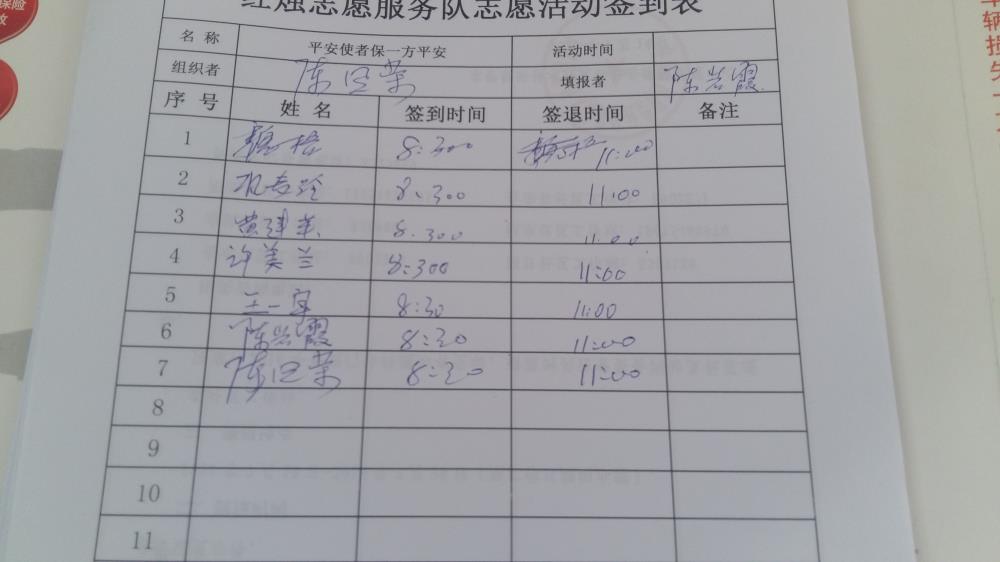 保险
红烛志愿服务队志愿活动签到表
名 称 平安使者保一方平安 活动时间
组织者 陈 荣 填报者 陈兴霞
序 号 姓 名 签到时间 签退时间 备注
1 8:300 11:00
2 8:300 11:00
3 黄 8:300 11:00
4 许美兰 8:300 11:00
5 王一宇 8:30 11:00
6 陈兴霞 8:30 11:00
7 陈 荣 8:30 11:00
8
9
10
11
车辆损失